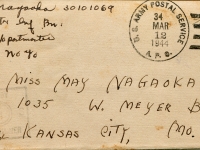 Nagaoka 30101069
Inf Bn.
No 40
U.S. ARMY POSTAL SERVICE
34
MAR
12
1944
A.P.O.
MISS MAY NAGAOKA
1035 W. MEYER B
KANSAS CITY, MO.